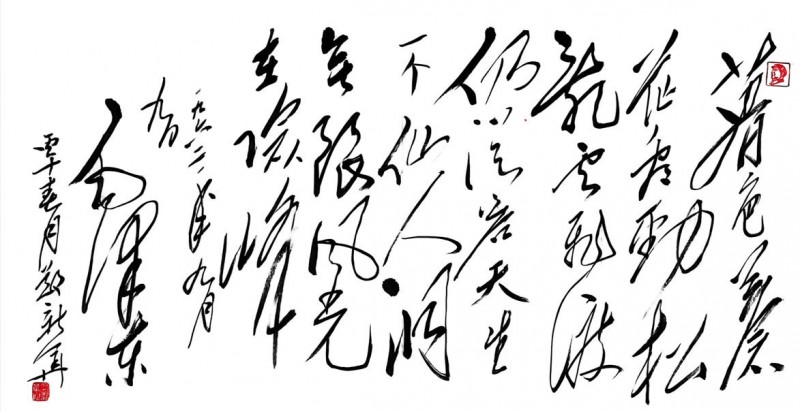 暮色蒼
茫看劲松
亂云飛渡
仍從容天生
一个仙人洞
無限风光
在險峰
一九六一年九月
九日
毛泽东
春月